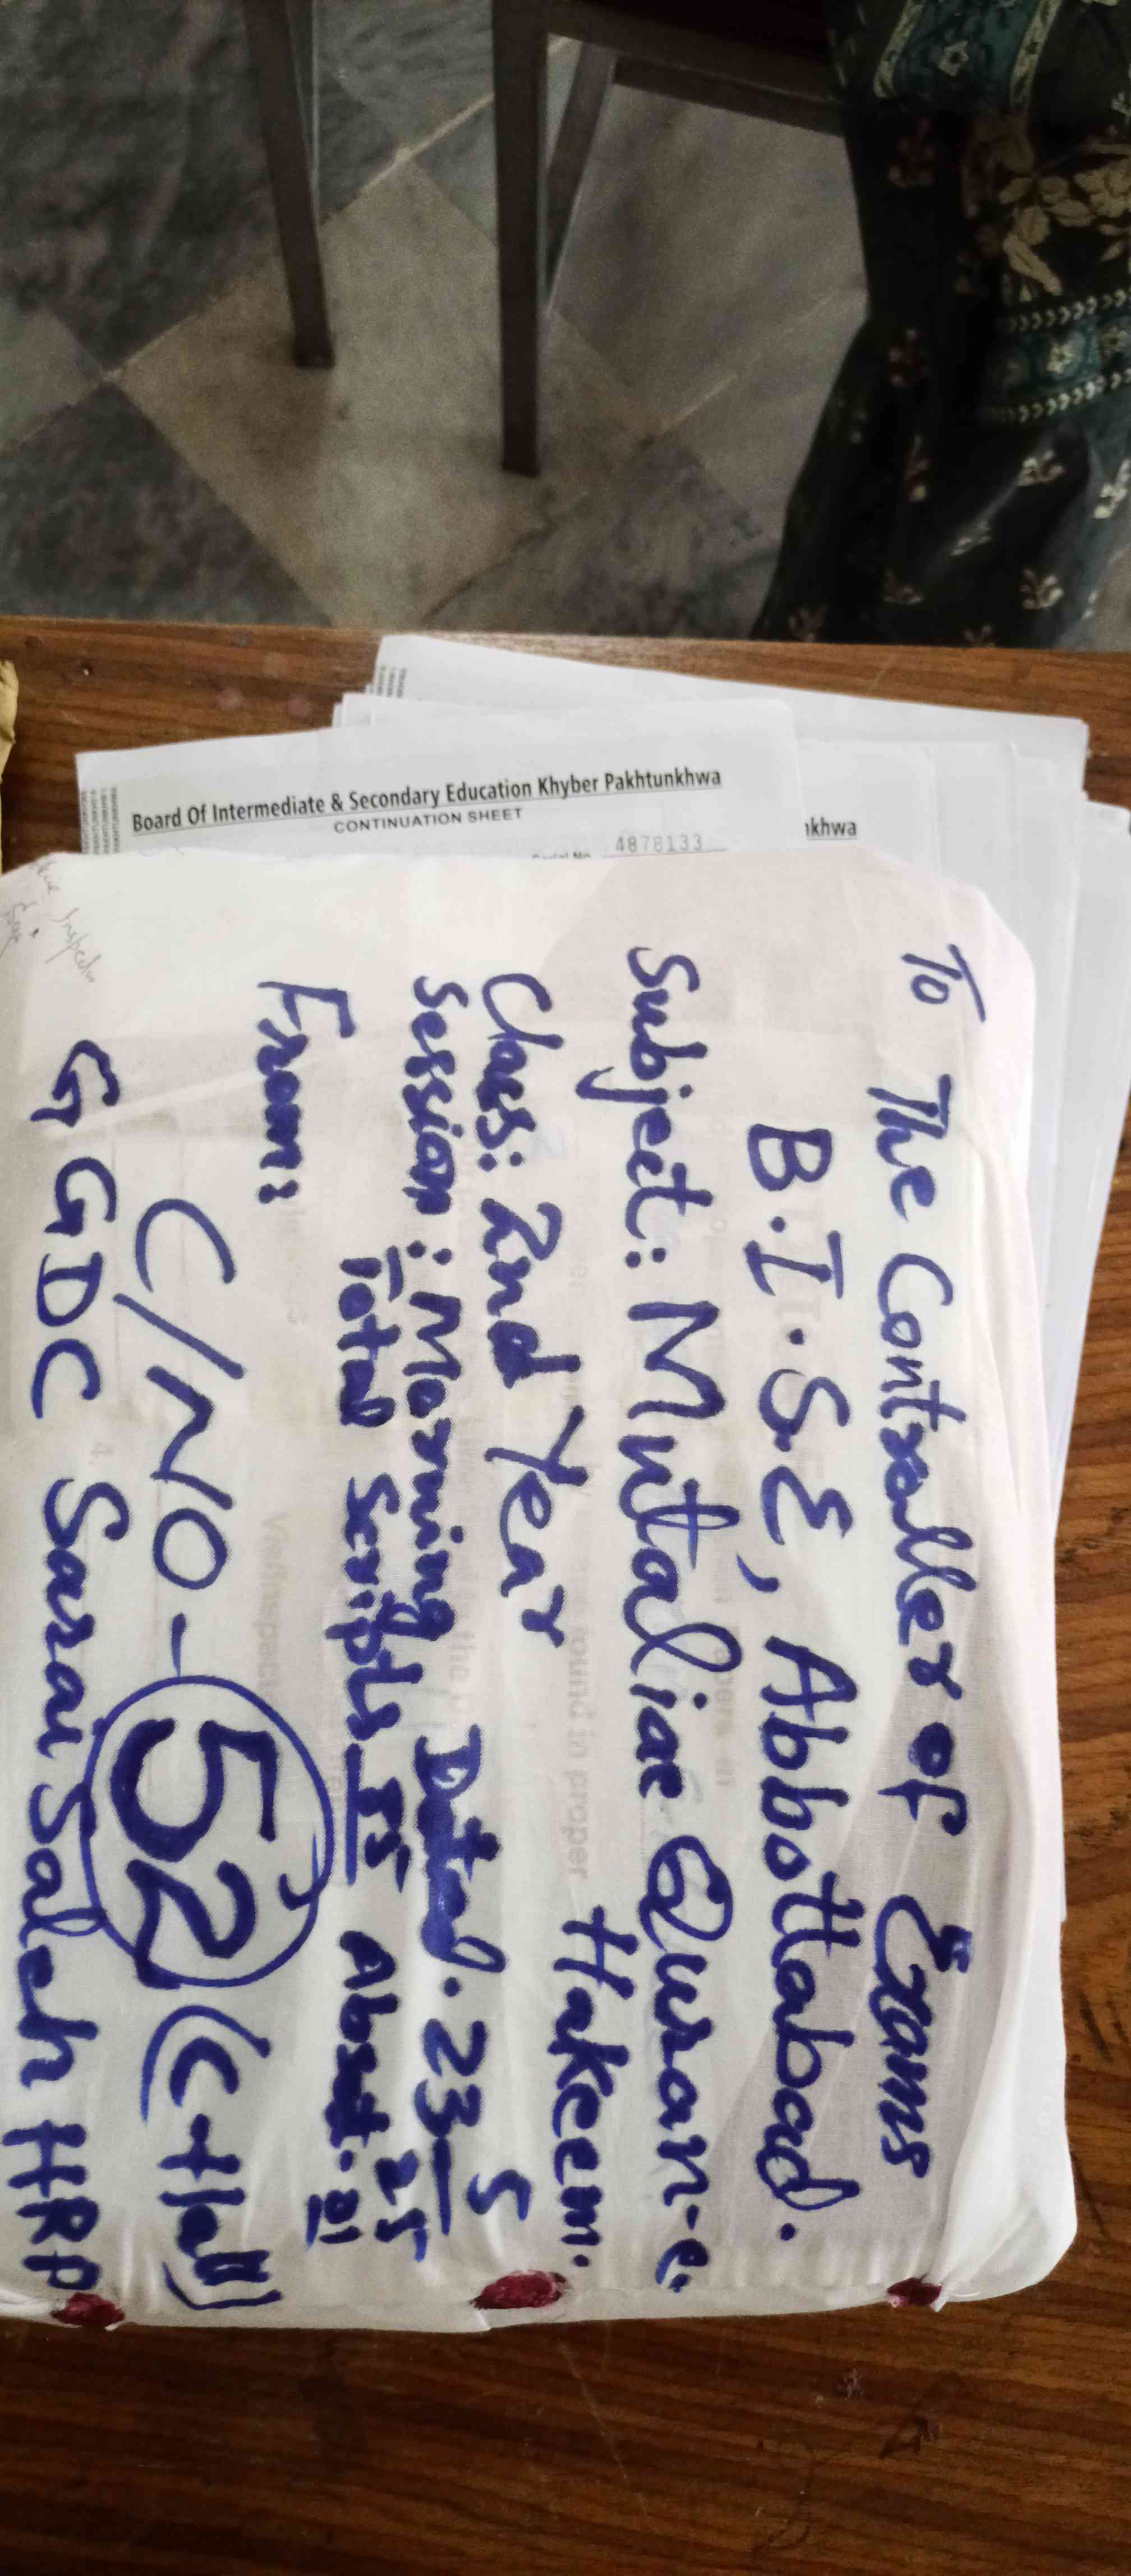 Board Of Intermediate & Secondary Education Khyber Pakhtunkhwa
CONTINUATION SHEET
4878133
nkhwa
To The Controller of Exams
B.I.S.E, Abbottabad.
Subject: Mutaliae Quran-e-
Hakeem.
Class: 2nd Year
Session: Morning Dated. 23-5
25
Total Scripts Absent. 01
From:
C/NO-52 (C-Hall)
GGDC Sarai Saleh HRP